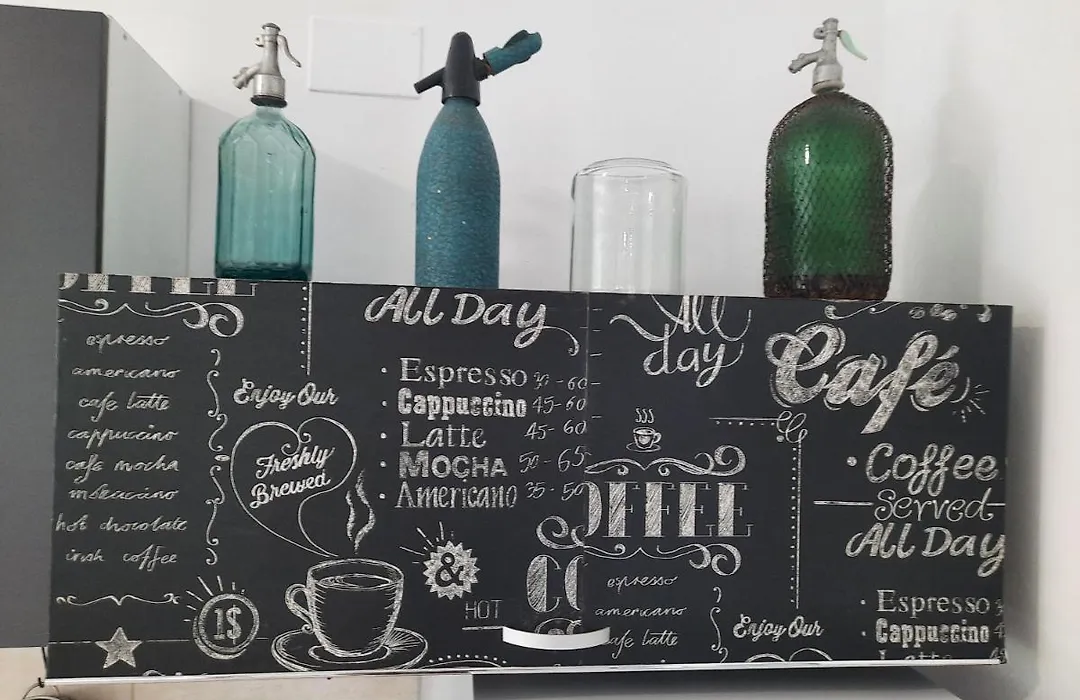 espresso
americano
cafe latte
cappuccino
cafe mocha
hot chocolate
irish coffee
1$
Enjoy Our
Freshly
Brewed
All Day
Espresso 30 - 60
Cappuccino 45- 60
Latte 45- 60
Mocha 50 - 65
Americano 35 - 50
&
HOT
All
day
OFFEE
espresso
americano
cafe latte
Café
Coffee
Served
All Day
Enjoy Our
Espresso
Cappuccino